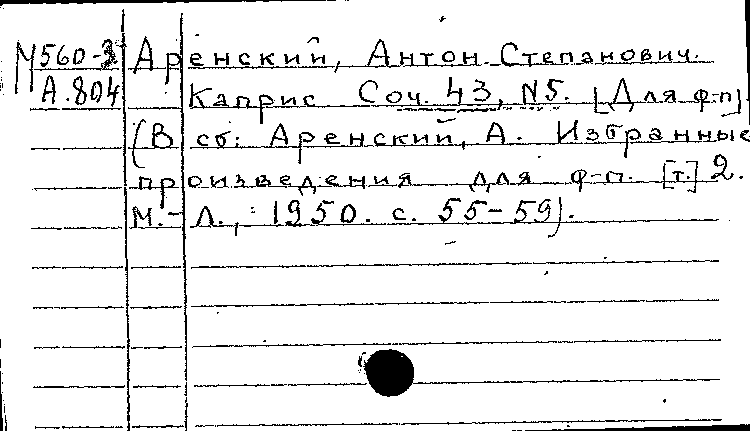 М560-3 Аренский, Антон Степанович.
А.804 Каприс Соч. 43, N5. [Для ф-п].
(В сб: Аренский, А. Избранные
произведения для ф-п. [т.] 2.
М.-Л., 1950. с. 55-59).